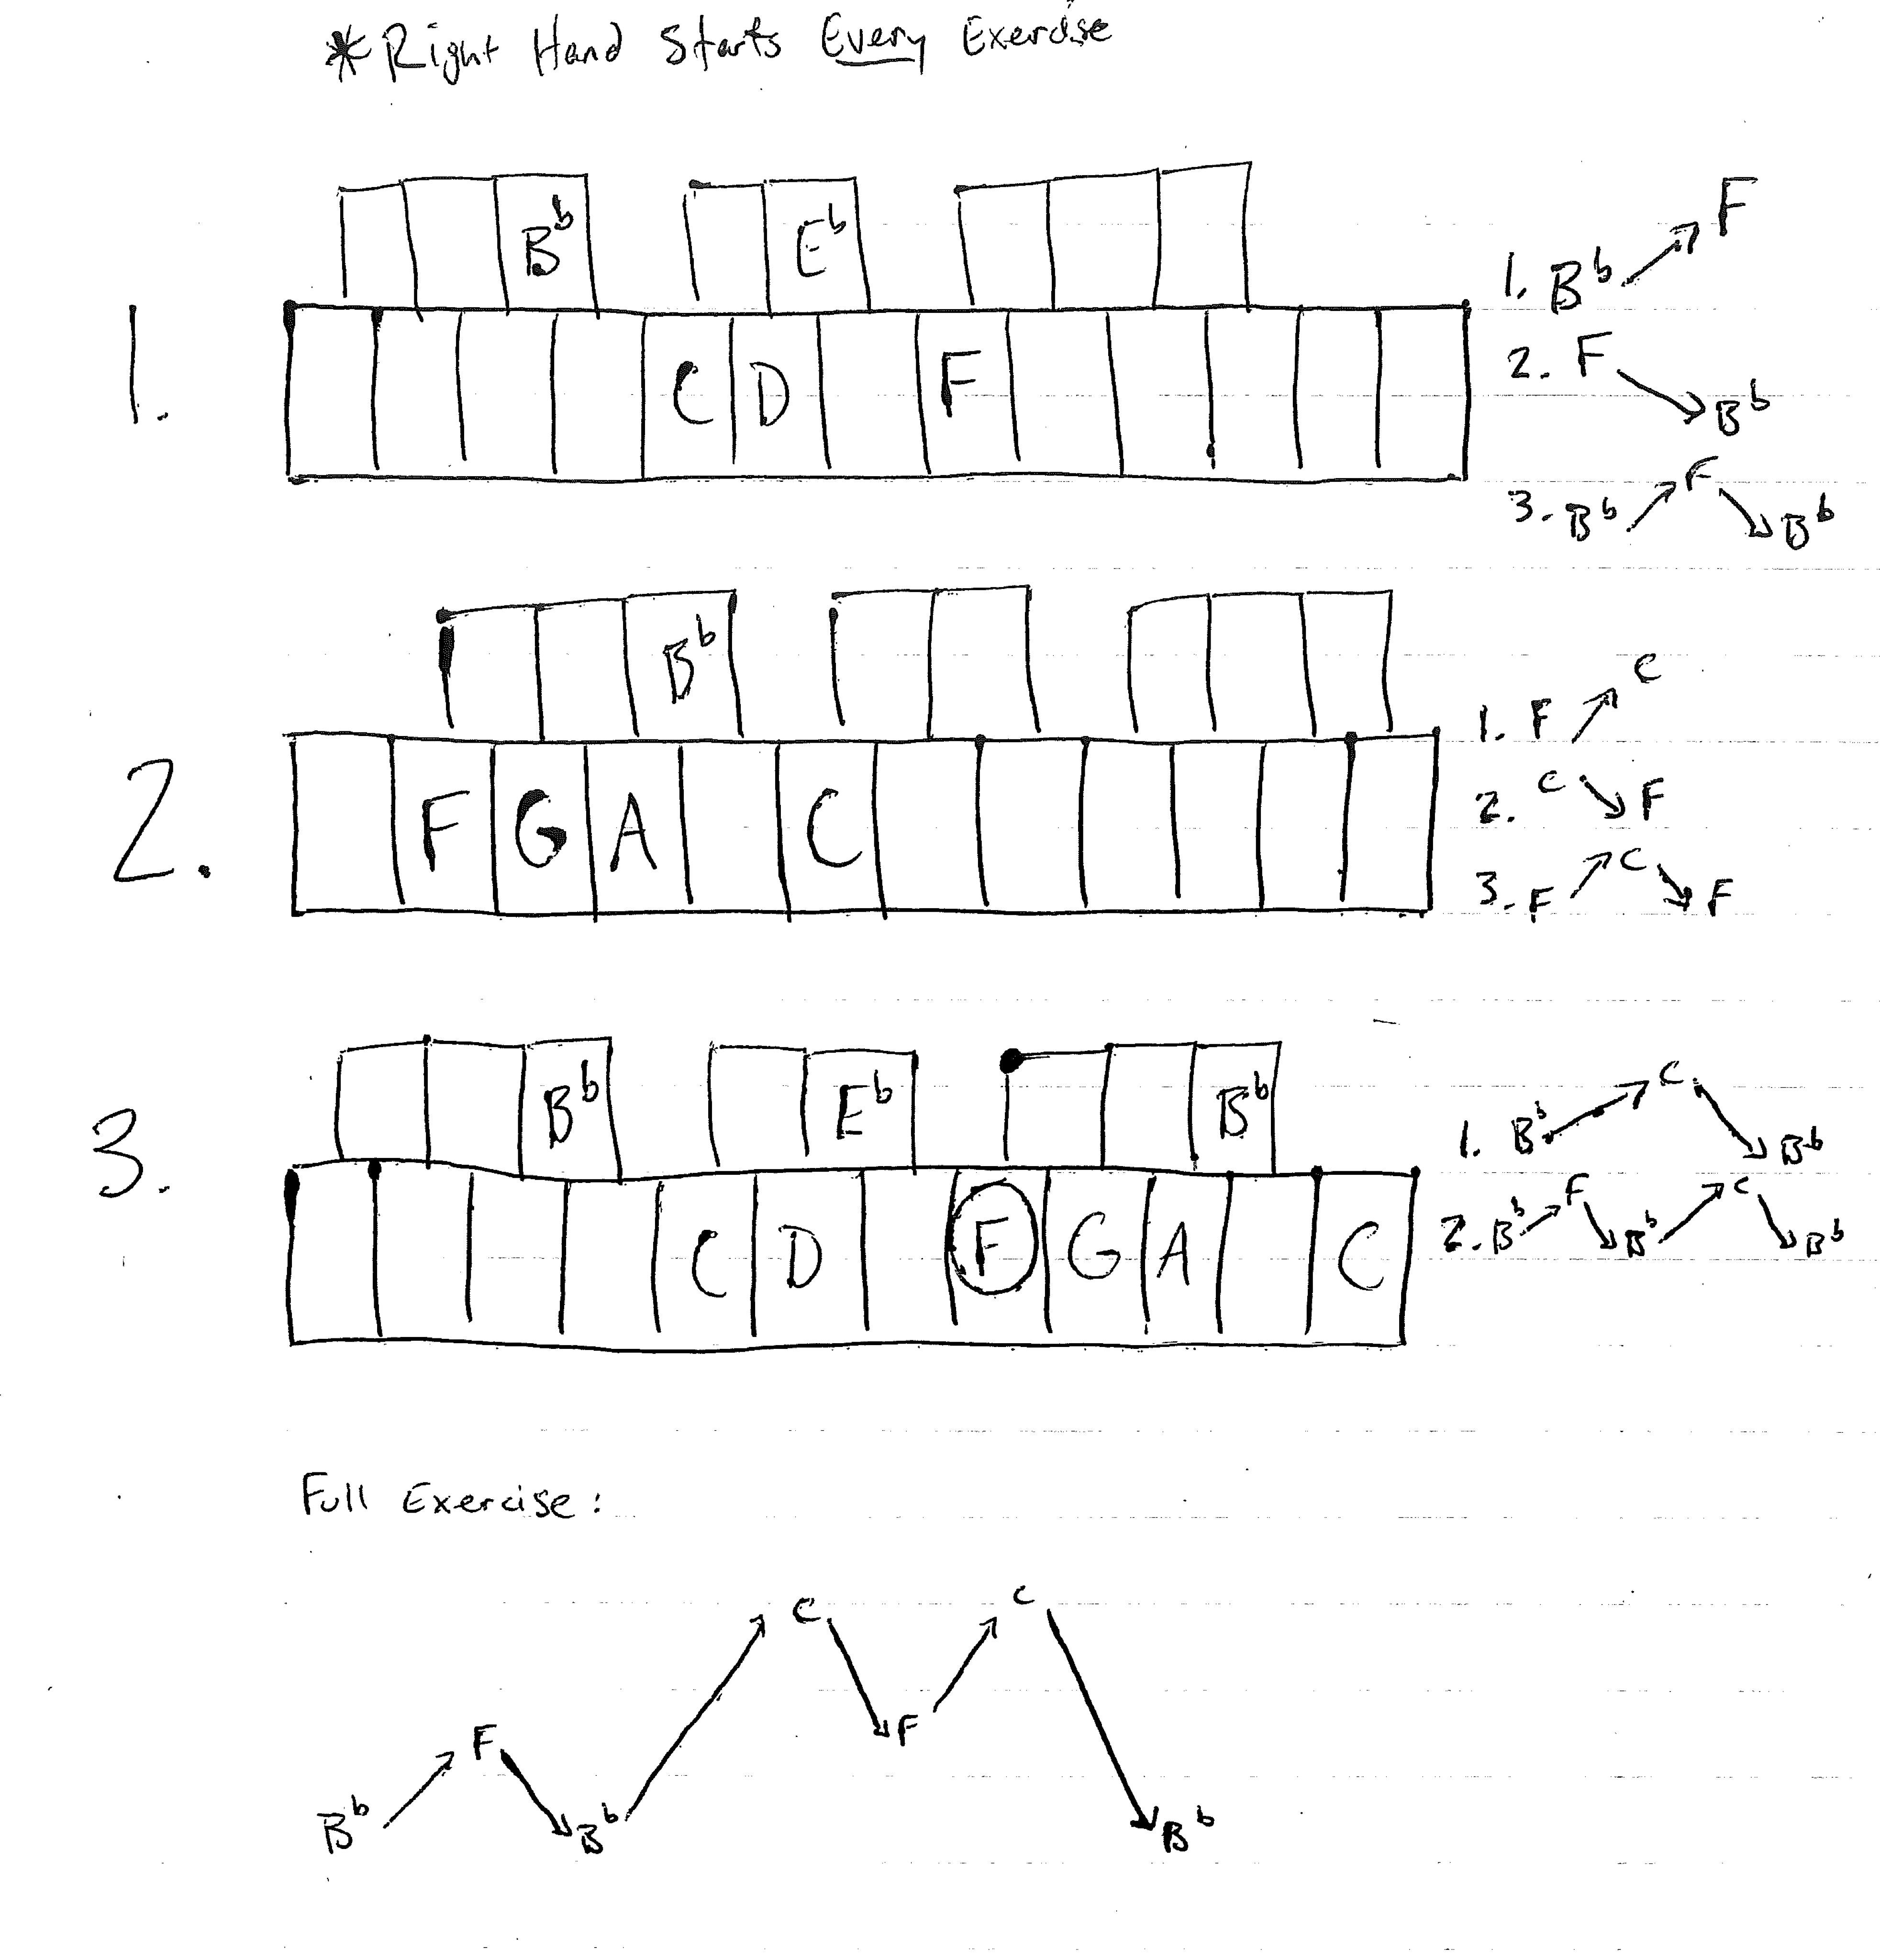 *Right Hand Starts Every Exercise
1.
Bb Eb
C D F
1. Bb F
2. F Bb
3. Bb F Bb
2.
Bb
F G A C
1. F C
2. C F
3. F C F
3.
Bb Eb Bb
C D F G A C
1. Bb C Bb
2. Bb F Bb C Bb
Full Exercise:
Bb F Bb C F C Bb